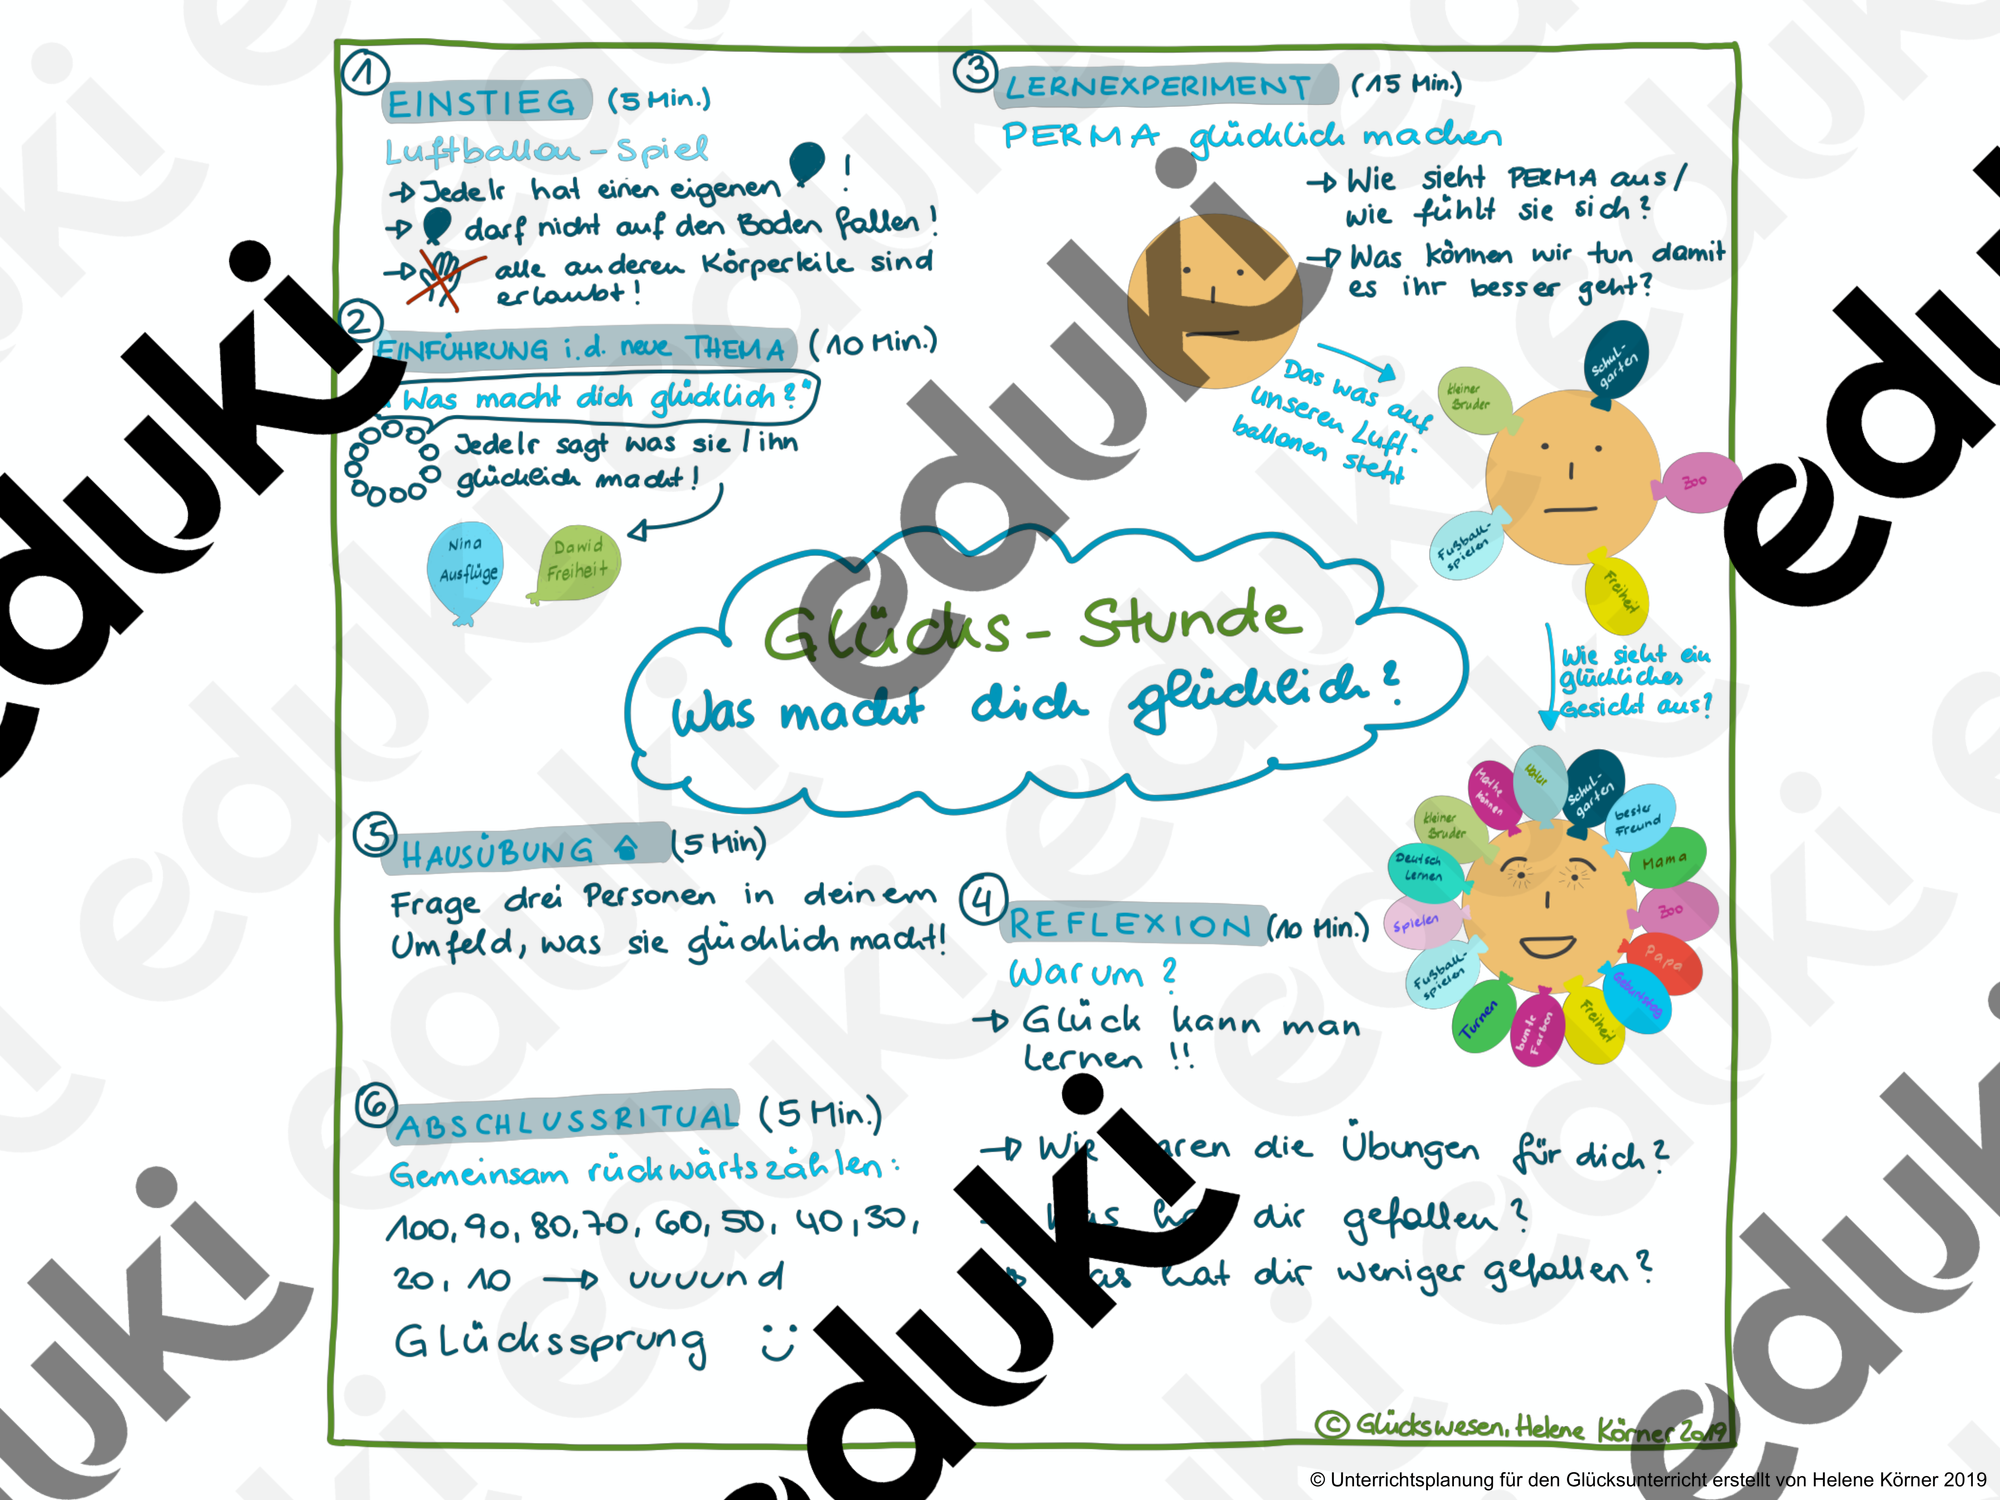 1
EINSTIEG (5 Min.)
Luftballon-Spiel
→ Jedelr hat einen eigenen !
→ darf nicht auf den Boden fallen!
→ alle anderen Körperteile sind
erlaubt!
2
EINFÜHRUNG i.d. neue THEMA (10 Min.)
Was macht dich glücklich?"
Jedelr sagt was sie/ihn
glücklich macht!
Nina
Ausflüge
Dawid
Freiheit
3
LERNEXPERIMENT (15 Min.)
PERMA glücklich machen
→ Wie sieht PERMA aus/
wie fühlt sie sich?
→ Was können wir tun damit
es ihr besser geht?
Das was auf
unseren Luft-
ballonen steht
kleiner
Bruder
Schul-
garten
Zoo
Fußball-
spielen
Freiheit
Wie sieht ein
glückliches
Gesicht aus?
Glücks-Stunde
Was macht dich glücklich?
Mathe
können
Natur
Schul-
garten
bester
Freund
kleiner
Bruder
Mama
Deutsch
Lernen
Zoo
Spielen
Papa
Fußball-
spielen
Geburtstag
Turnen
bunte
Farben
Freiheit
4
REFLEXION (10 Min.)
Warum?
→ Glück kann man
Lernen!!
→ Wie waren die Übungen für dich?
Was hat dir gefallen?
→ Was hat dir weniger gefallen?
5
HAUSÜBUNG (5 Min)
Frage drei Personen in deinem
Umfeld, was sie glücklich macht!
6
ABSCHLUSSRITUAL (5 Min.)
Gemeinsam rückwärtszählen:
100, 90, 80, 70, 60, 50, 40, 30,
20, 10 → uuuund
Glückssprung
© Glückswesen, Helene Körner 2019
© Unterrichtsplanung für den Glücksunterricht erstellt von Helene Körner 2019
eduki
eduki
eduki
eduki
eduki
eduki
eduki